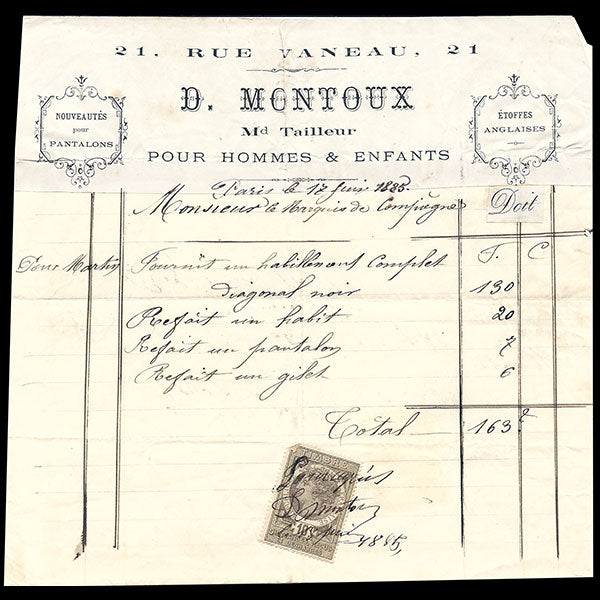 21, RUE VANEAU, 21
D. MONTOUX
Md Tailleur
POUR HOMMES & ENFANTS
NOUVEAUTÉS
pour
PANTALONS
ÉTOFFES
ANGLAISES
Paris le 12 Juin 1885.
Monsieur le Marquis de Compiègne Doit
F. C
Pour Martin Fournit un habillement Complet
diagonal noir 130
Refait un habit 20
Refait un pantalon 7
Refait un gilet 6
Total 163
TIMBRE
D. Montoux
1885,